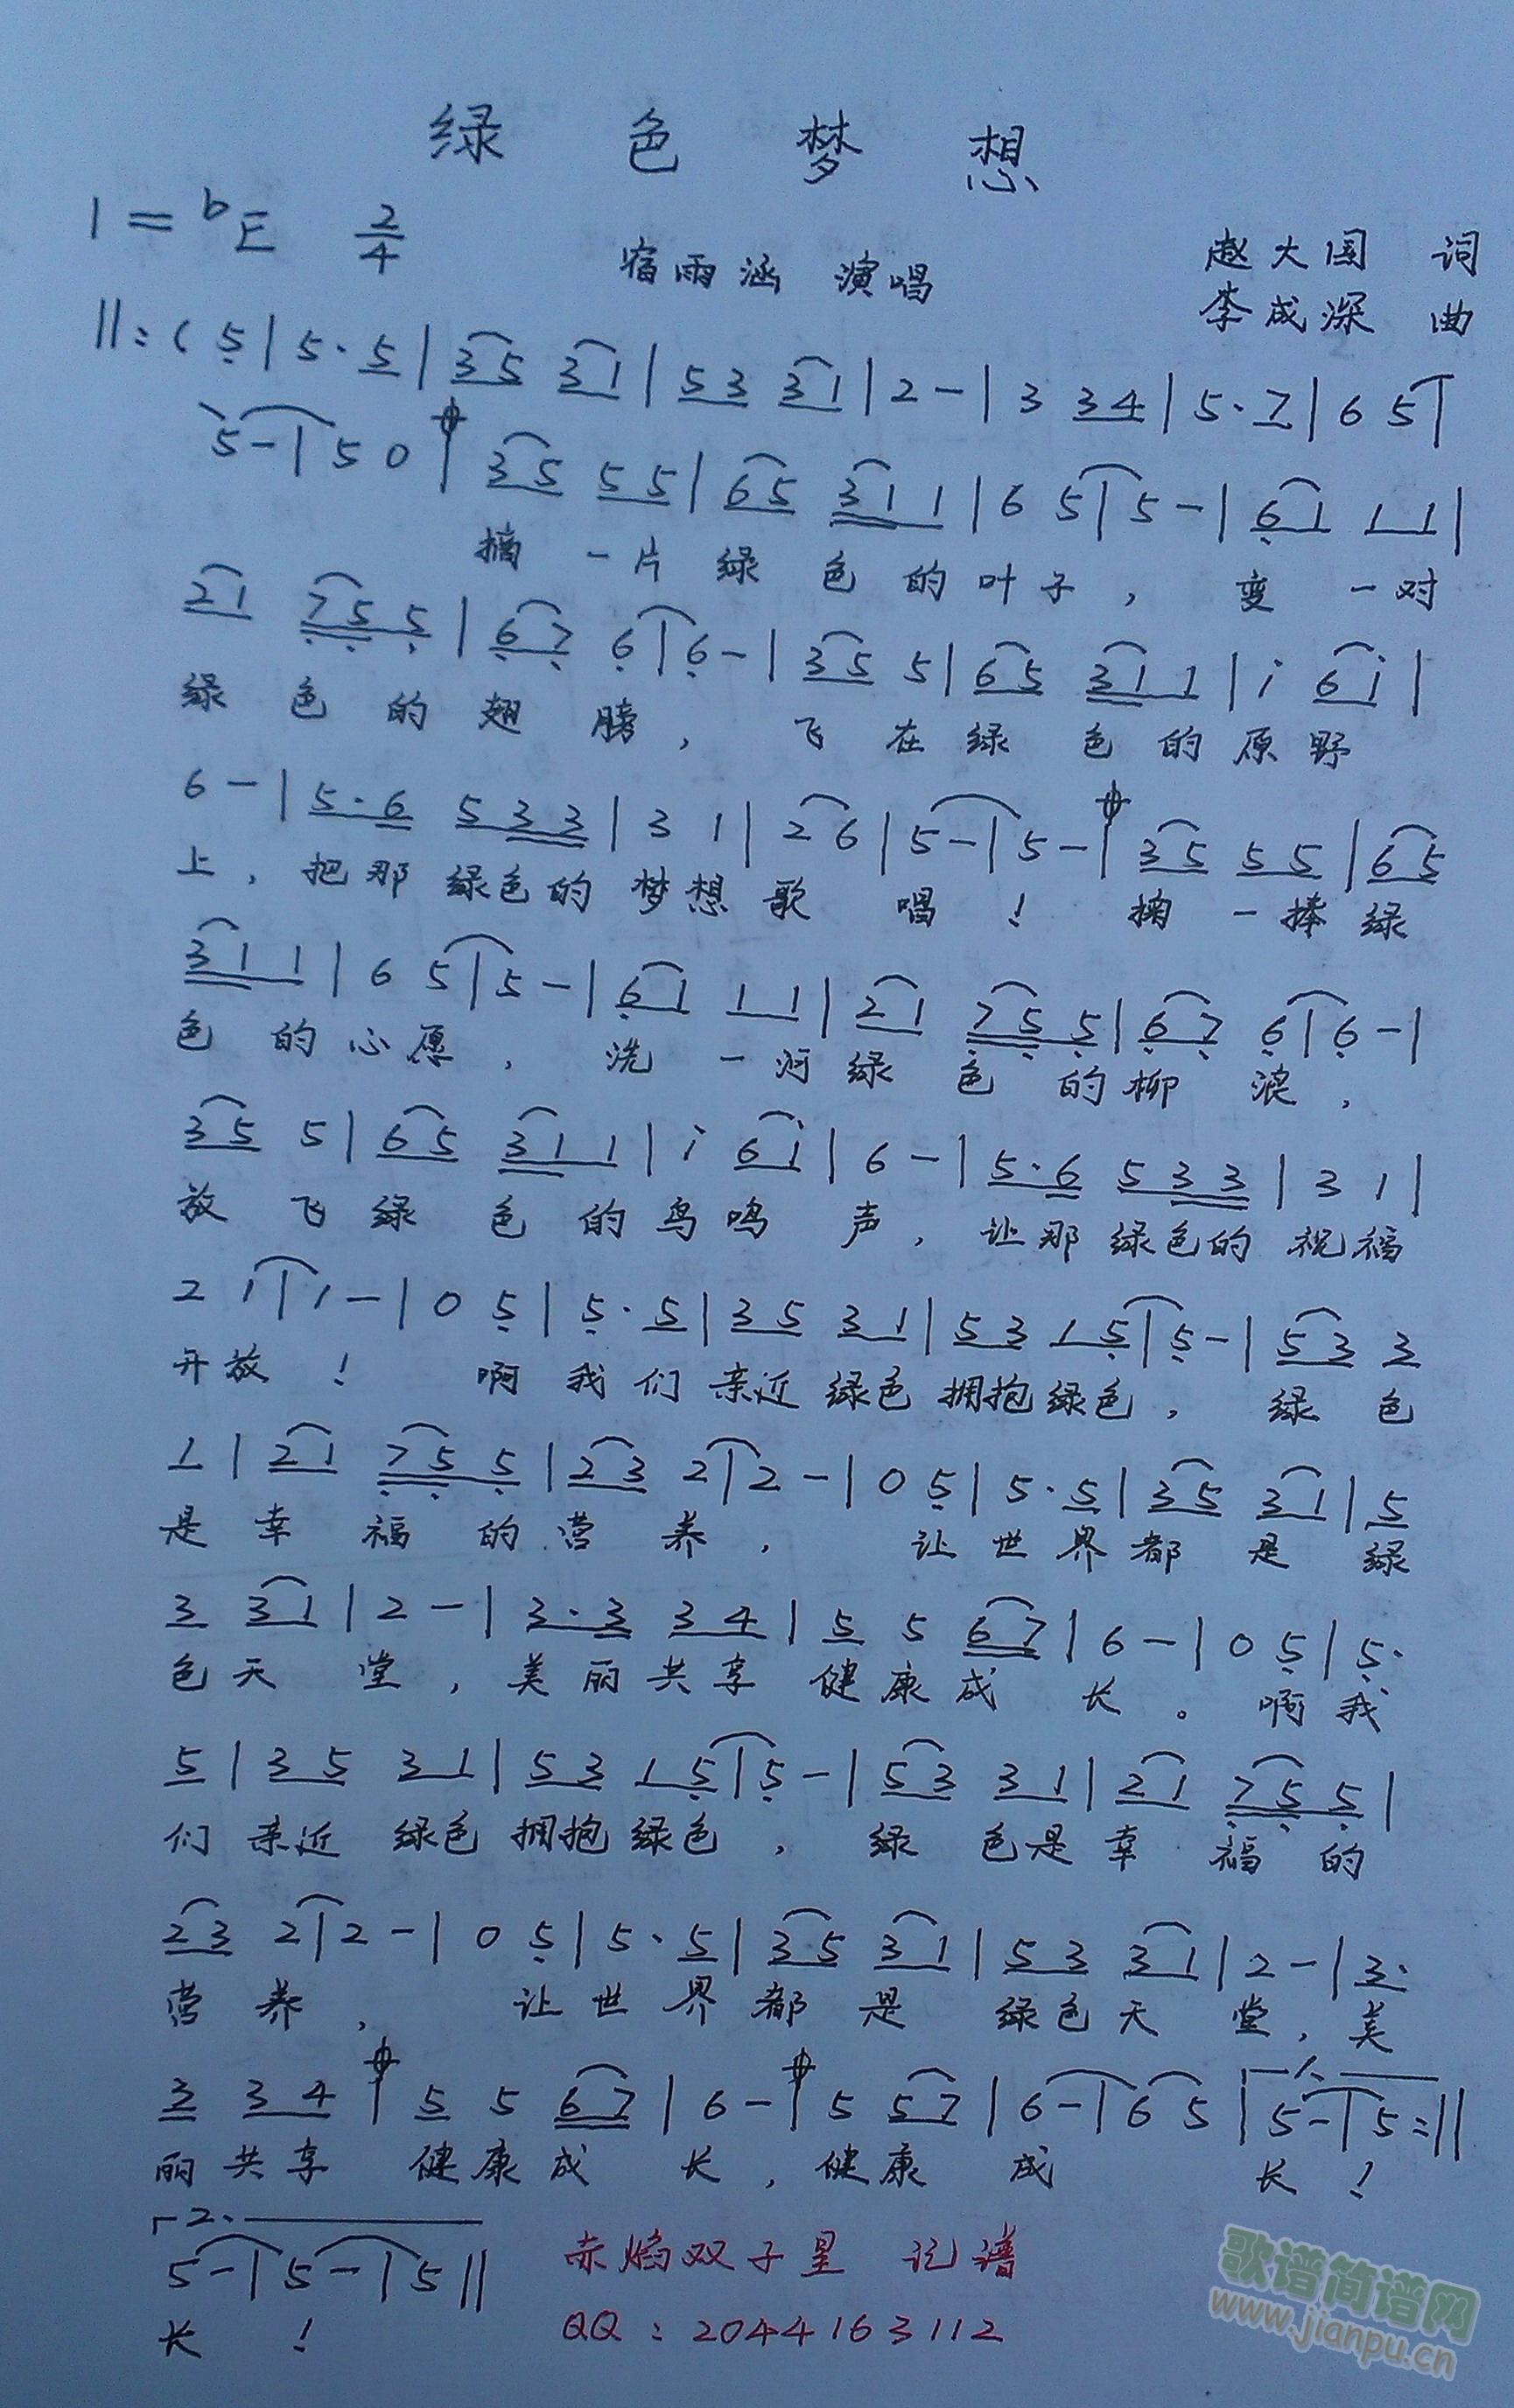 绿色梦想
1=bE 2/4
宿雨涵 演唱
赵大国 词
李成深 曲
||:( 5 | 5· 5 | 35 31 | 53 31 | 2 - | 3 34 | 5· 7 | 6 5 |
5 - | 5 0 | 35 55 | 65 311 | 6 5 | 5 - | 61 11 |
摘一片绿色的叶子,变一对
21 755 | 67 6 | 6 - | 35 5 | 65 311 | i 6i |
绿色的翅膀,飞在绿色的原野
6 - | 5·6 533 | 3 1 | 2 6 | 5 - | 5 - | 35 55 | 65
上,把那绿色的梦想歌唱!掬一捧绿
311 | 6 5 | 5 - | 61 11 | 21 755 | 67 6 | 6 - |
色的心愿,洗一河绿色的柳浪,
35 5 | 65 311 | i 6i | 6 - | 5·6 533 | 3 1 |
放飞绿色的鸟鸣声,让那绿色的祝福
2 1 | 1 - | 0 5 | 5· 5 | 35 31 | 53 15 | 5 - | 53 3
开放!啊我们亲近绿色拥抱绿色,绿色
1 | 21 755 | 23 2 | 2 - | 0 5 | 5· 5 | 35 31 | 5
是幸福的营养,让世界都是绿
3 31 | 2 - | 3·3 34 | 5 5 67 | 6 - | 0 5 | 5·
色天堂,美丽共享健康成长。啊我
5 | 35 31 | 53 15 | 5 - | 53 31 | 21 755 |
们亲近绿色拥抱绿色,绿色是幸福的
23 2 | 2 - | 0 5 | 5· 5 | 35 31 | 53 31 | 2 - | 3·
营养,让世界都是绿色天堂,美
3 34 | 5 5 67 | 6 - | 5 57 | 6 - | 6 5 | 1. 5 - | 5 :||
丽共享健康成长,健康成长!
2.
5 - | 5 - | 5 ||
长!
赤焰双子星 记谱
QQ:2044163112
歌谱简谱网
www.jianpu.cn